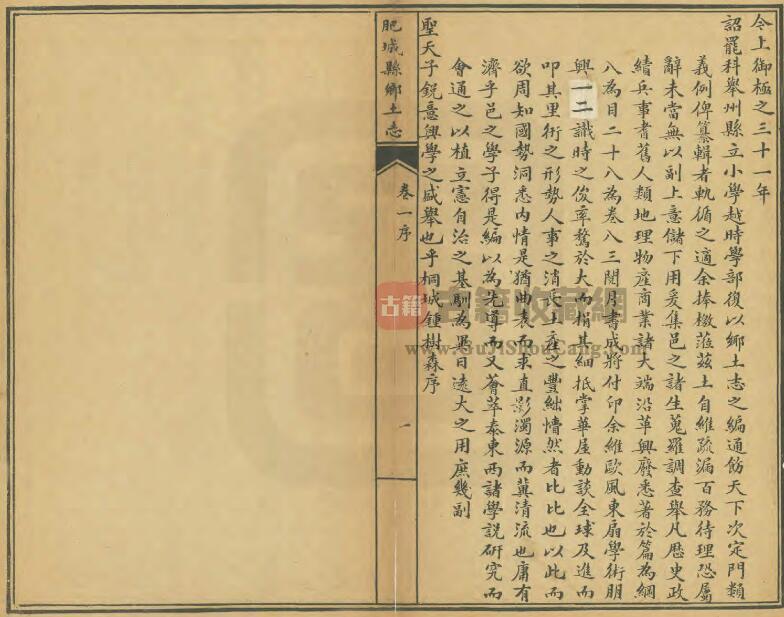 今上御極之三十一年
詔罷科舉州縣立小學越時學部復以鄉土志之編通飭天下次定門類
義例俾纂輯者軌循之適余捧檄蒞茲土自維疏漏百務待理恐屬
辭未當無以副上意儲下用爰集邑之諸生蒐羅調查舉凡歷史政
績兵事耆舊人類地理物產商業諸大端沿革興廢悉著於篇為綱
八為目二十八為卷八三閱月書成將付印余維歐風東扇學術朋
興一二識時之俊率騖於大而捐其細抵掌華屋動談全球及進而
叩其里衖之形勢人事之消長土產之豐絀懵然者比比也以此而
欲周知國勢洞悉內情是猶曲表而求直影濁源而冀清流也庸有
濟乎邑之學子得是編以為先導而又薈萃泰東西諸學說研究而
會通之以植立憲自治之基馴為異日遠大之用庶幾副
聖天子銳意興學之盛舉也乎桐城鍾樹森序
肥城縣鄉土志
卷一序
一
古籍
古籍收藏網
www.GuJiShouCang.com